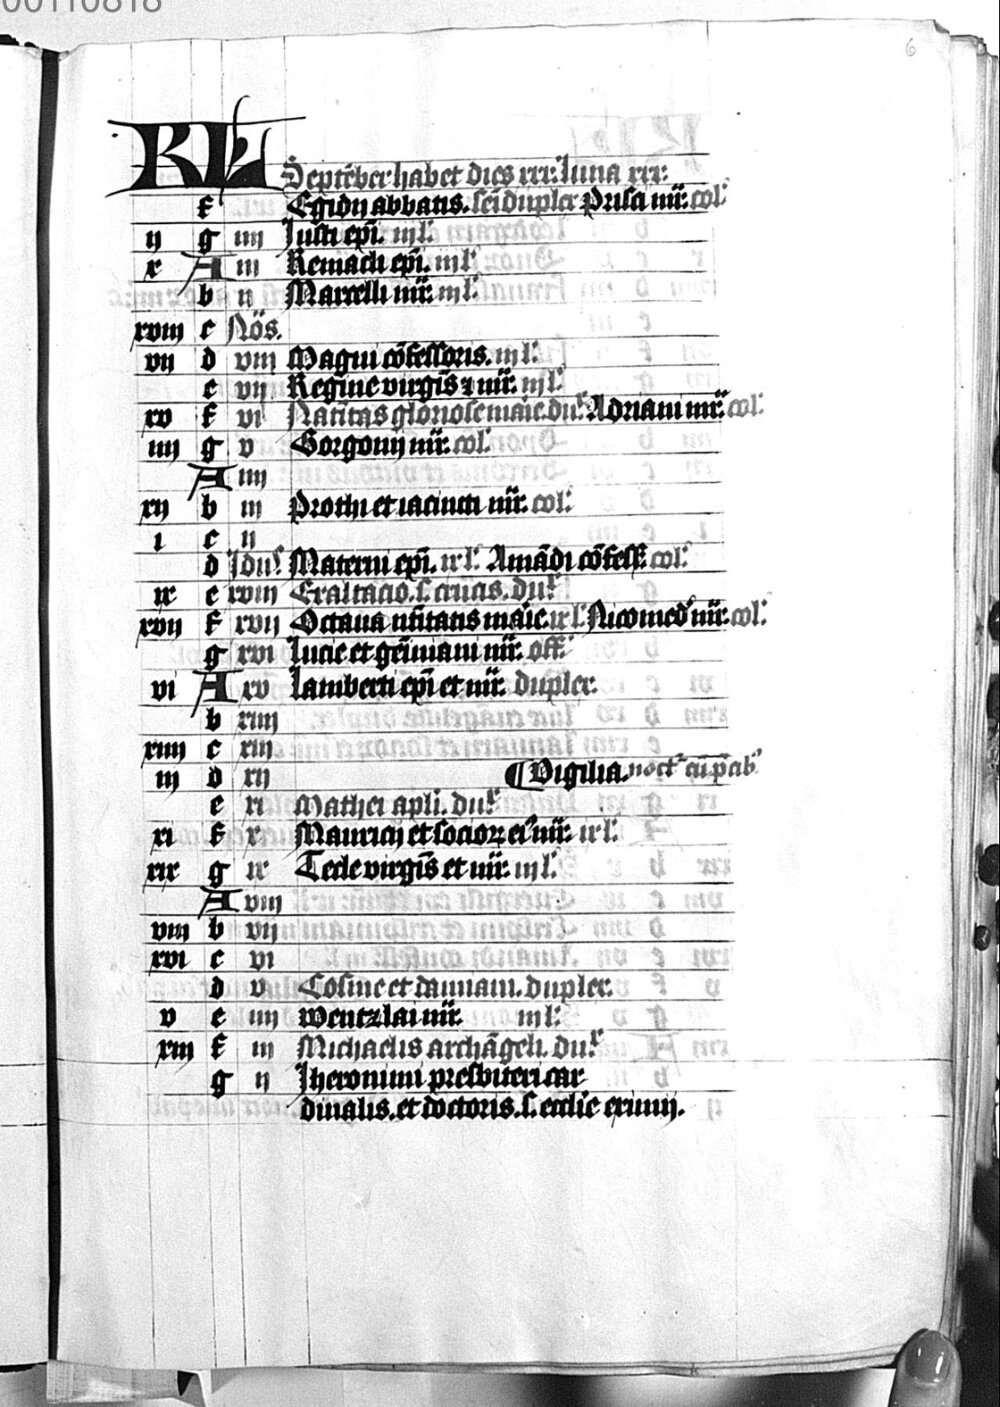 00110818
6
KL
Septẽber habet dies xxx. luna xxx.
f Egidij abbatis. sci dupler Prisci mr̃. col'.
ij g iiij Justi epĩ. iij l'.
x A iij Remacli epĩ. iij l'.
b ij Marcelli mr̃. iij l'.
xviij c Nõs.
vij d viij Magni cõfessoris. iij l'.
e vij Regine virgĩs ⁊ mr̃. iij l'.
xv f vi Natĩtas gloriose marie. du'. Adriani mr̃. col'.
iiij g v Gorgonij mr̃. col'.
A iiij
xij b iij Prothi et iacincti mr̃. col'.
i c ij
d Idus. Materni epĩ. ix l'. Amãdi cõfess. col'.
ix e xviij Exaltacio. s. crucis. du'.
xvij f xvij Octaua nĩtitatis marie. ix l'. Nicomed' mr̃. col'.
g xvi Lucie et gẽmiani mr̃. off.
vi A xv Lamberti epĩ et mr̃. dupler.
b xiiij
xiiij c xiij
iij d xij ¶ Vigilia. noct'
e xi Mathei apli. du'.
xi f x Mauricij et socioꝝ ei' mr̃. ix l'.
xix g ix Tecle virgĩs et mr̃. iij l'.
A viij
viij b vij
xvi c vi
d v Cosme et damiani. dupler.
v e iiij Wentzlai mr̃. iij l'.
xiij f iij Michaelis archãgeli. du'.
g ij Jheronimi presbiteri car
dinalis. et doctoris. s. ecclie eximij.